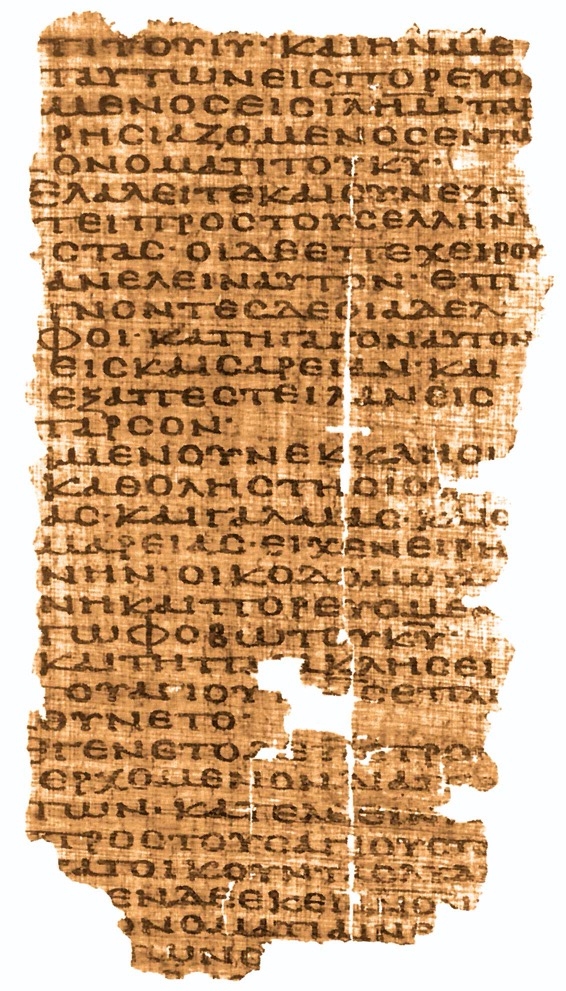 ΤΙΤΟΥΙΥ· ΚΑΙΗΝΜΕ
ΤΑΥΤΩΝΕΙСΠΟΡΕΥΟ
ΜΕΝΟСΕΙСΙΛΗΜ·ΠΑ
ΡΗСΙΑΖΟΜΕΝΟСΕΝΤΩ
ΟΝΟΜΑΤΙΤΟΥΚΥ·
ΕΛΑΛΕΙΤΕΚΑΙСΥΝΕΖΗ
ΤΕΙΠΡΟСΤΟΥСΕΛΛΗΝΙ
СΤΑС· ΟΙΔΕΕΠΕΧΕΙΡΟΥ
ΑΝΕΛΕΙΝΑΥΤΟΝ· ΕΠΙ
ΓΝΟΝΤΕСΔΕΟΙΑΔΕΛ
ΦΟΙ· ΚΑΤΗΓΑΓΟΝΑΥΤΟΝ
ΕΙСΚΑΙСΑΡΕΙΑΝ· ΚΑΙ
ΕΞΑΠΕСΤΕΙΛΑΝΕΙС
ΤΑΡСΟΝ·
ΜΕΝΟΥΝΕΚΚΛΗСΙ
ΚΑΘΟΛΗСΤΗСΙΟΥ
ΑС· ΚΑΙΓΑΛΙΛΑΙΑС· ΚΑΙС
ΜΑΡΕΙΑС· ΕΙΧΕΝΕΙΡΗ
ΝΗΝ· ΟΙΚΟΔΟΜΟΥΜ
ΝΗΚΑΙΠΟΡΕΥΟΜΕΝ
ΤΩΦΟΒΩΤΟΥΚΥ·
ΚΑΙΤΗΠ ΚΛΗСΕΙ
ΤΟΥΑΓΙΟΥ СΕΠΛΗ
ΘΥΝΕΤΟ·
ΕΓΕΝΕΤΟΔΕΠΕΤΡΟΝ
ΕΡΧΟΜΕΝΟΝΔΙΑΠ
ΤΩΝ· ΚΑΙΕΛΘΕΙΝ
ΠΡΟСΤΟΥСΑΓΙΟΥСΤ
ΑΤΟΙΚΟΥΝΤΑС
ΕΝΔΕΕΚΕΙ
ΟΝΟΜΑΤΙΑΙΝΕ